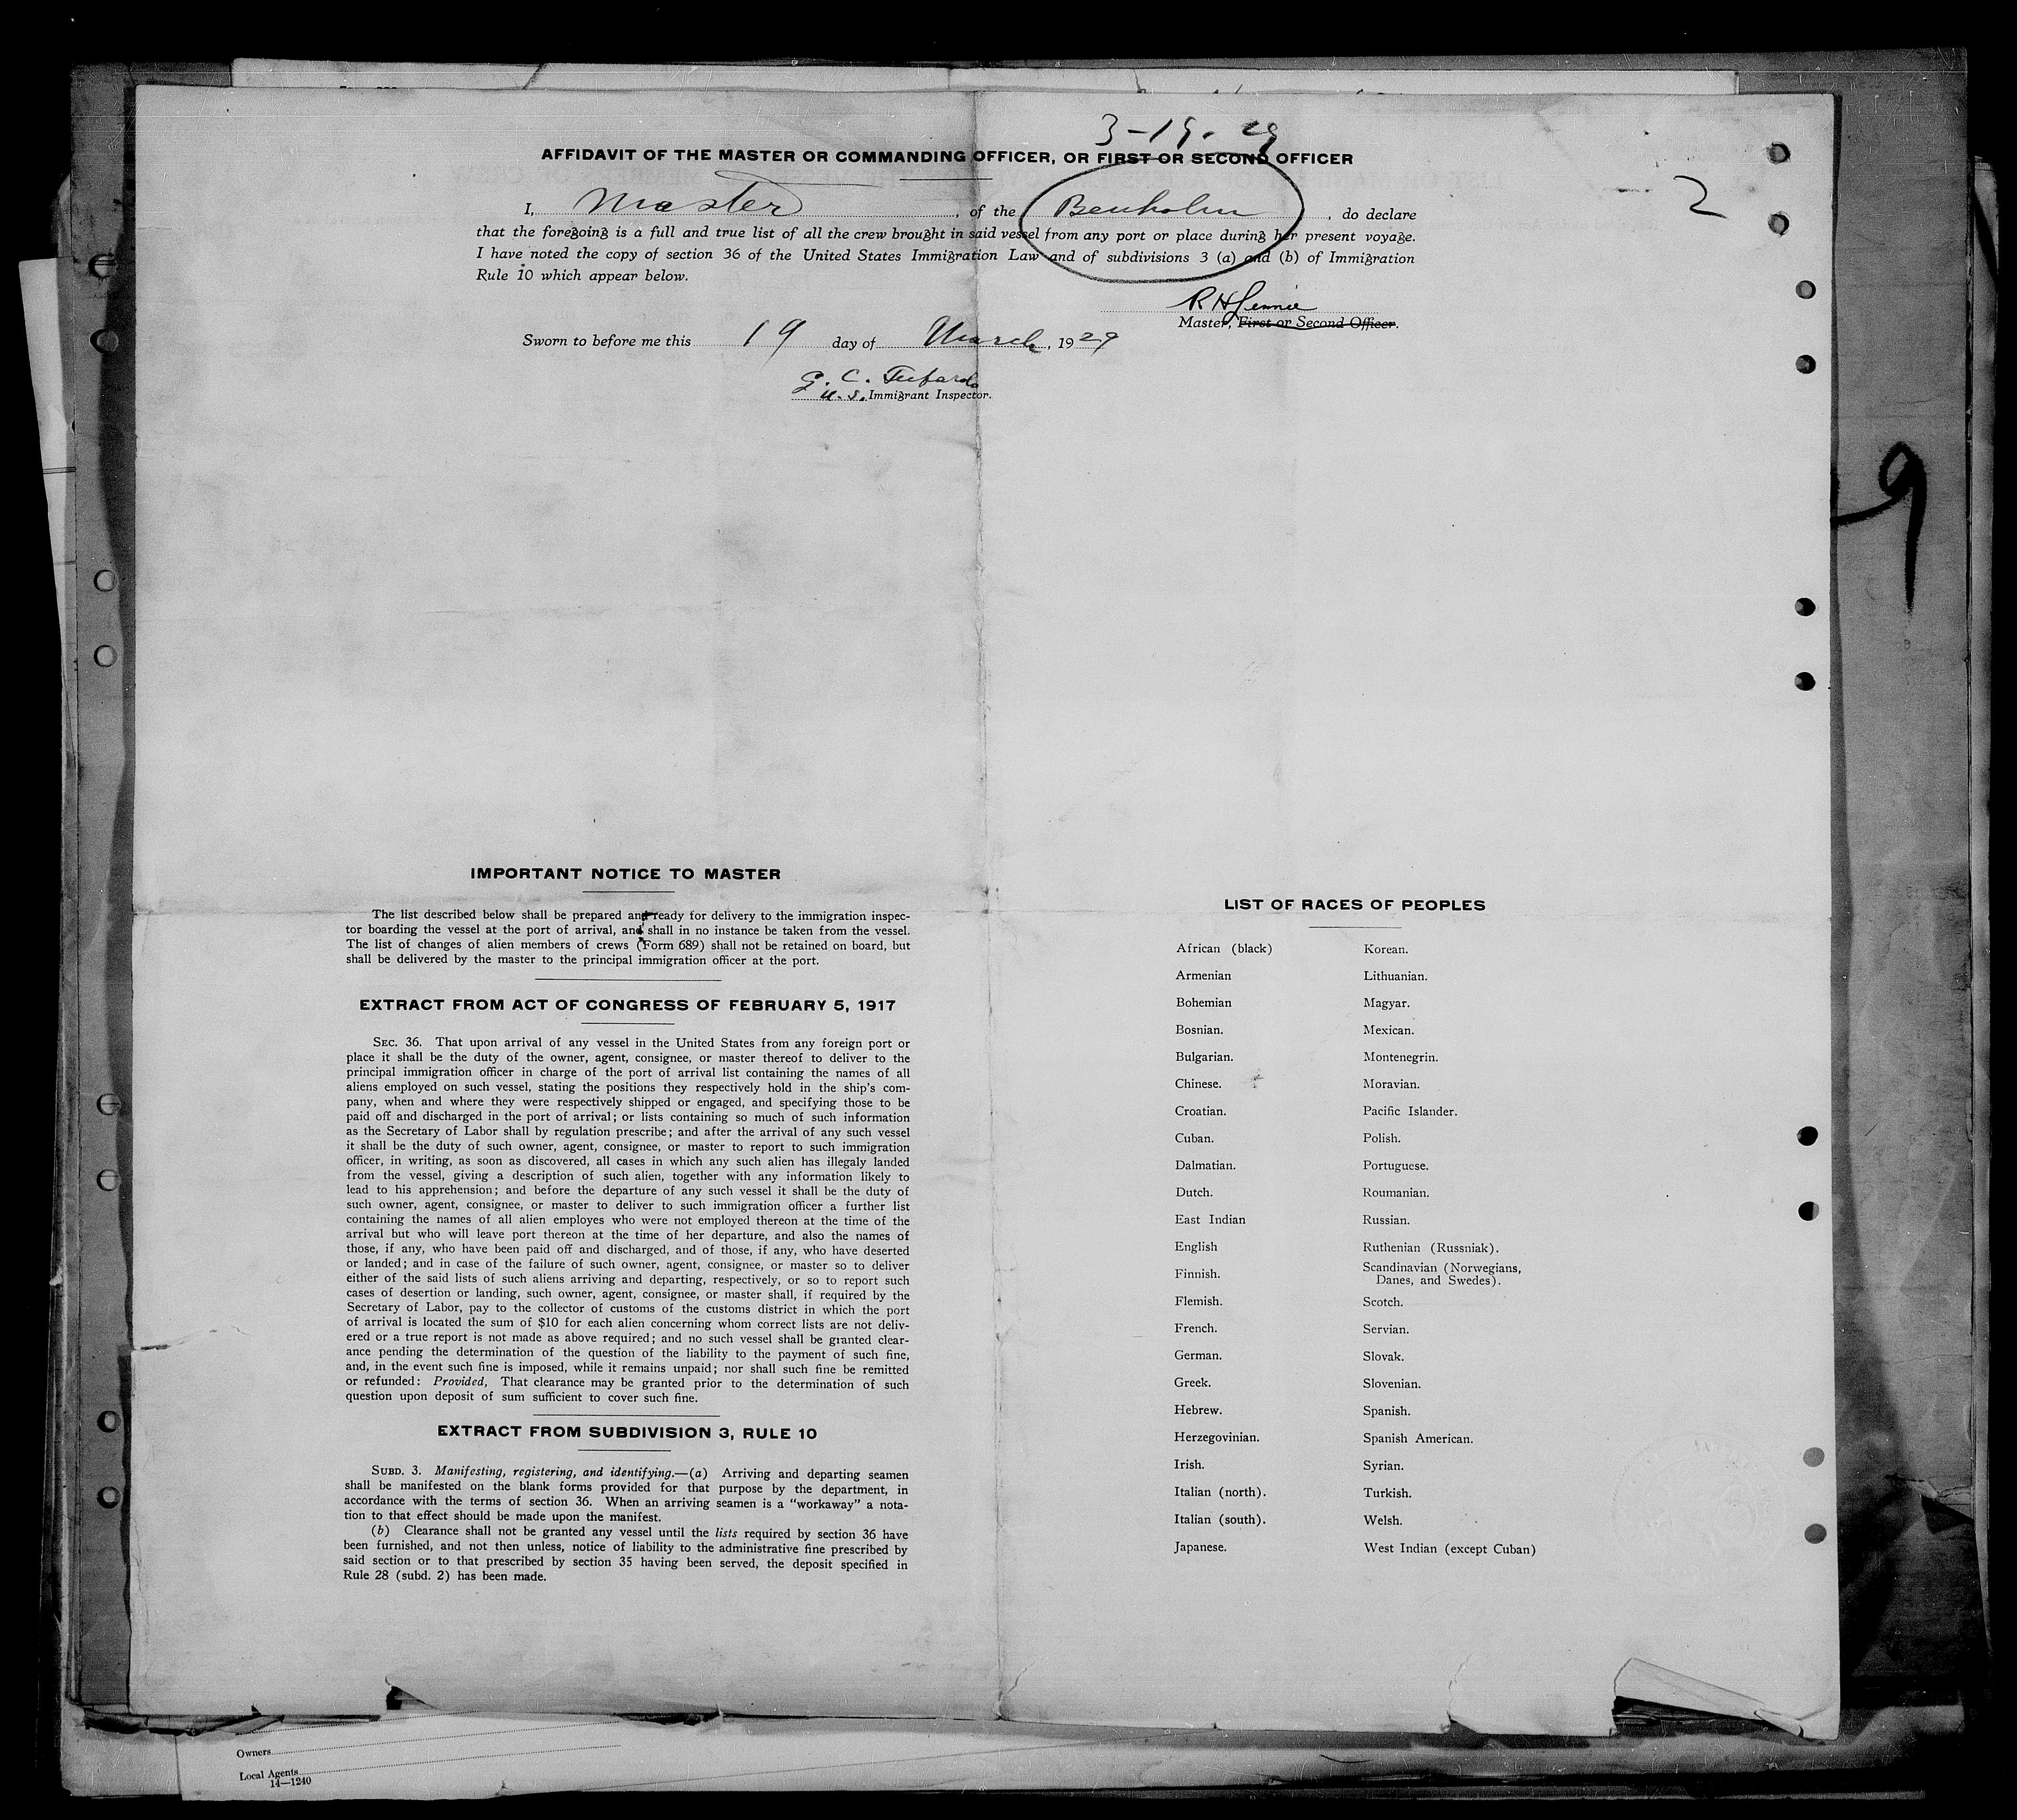 3-19-29
AFFIDAVIT OF THE MASTER OR COMMANDING OFFICER, OR FIRST OR SECOND OFFICER
2
I, Master, of the Benholm, do declare
that the foregoing is a full and true list of all the crew brought in said vessel from any port or place during her present voyage.
I have noted the copy of section 36 of the United States Immigration Law and of subdivisions 3 (a) and (b) of Immigration
Rule 10 which appear below.
R H
Master, First or Second Officer.
Sworn to before me this 19 day of March, 1929
G. C.
U. S. Immigrant Inspector.
9
IMPORTANT NOTICE TO MASTER
The list described below shall be prepared and ready for delivery to the immigration inspec-
tor boarding the vessel at the port of arrival, and shall in no instance be taken from the vessel.
The list of changes of alien members of crews (Form 689) shall not be retained on board, but
shall be delivered by the master to the principal immigration officer at the port.
EXTRACT FROM ACT OF CONGRESS OF FEBRUARY 5, 1917
SEC. 36. That upon arrival of any vessel in the United States from any foreign port or
place it shall be the duty of the owner, agent, consignee, or master thereof to deliver to the
principal immigration officer in charge of the port of arrival list containing the names of all
aliens employed on such vessel, stating the positions they respectively hold in the ship's com-
pany, when and where they were respectively shipped or engaged, and specifying those to be
paid off and discharged in the port of arrival; or lists containing so much of such information
as the Secretary of Labor shall by regulation prescribe; and after the arrival of any such vessel
it shall be the duty of such owner, agent, consignee, or master to report to such immigration
officer, in writing, as soon as discovered, all cases in which any such alien has illegaly landed
from the vessel, giving a description of such alien, together with any information likely to
lead to his apprehension; and before the departure of any such vessel it shall be the duty of
such owner, agent, consignee, or master to deliver to such immigration officer a further list
containing the names of all alien employes who were not employed thereon at the time of the
arrival but who will leave port thereon at the time of her departure, and also the names of
those, if any, who have been paid off and discharged, and of those, if any, who have deserted
or landed; and in case of the failure of such owner, agent, consignee, or master so to deliver
either of the said lists of such aliens arriving and departing, respectively, or so to report such
cases of desertion or landing, such owner, agent, consignee, or master shall, if required by the
Secretary of Labor, pay to the collector of customs of the customs district in which the port
of arrival is located the sum of $10 for each alien concerning whom correct lists are not deliv-
ered or a true report is not made as above required; and no such vessel shall be granted clear-
ance pending the determination of the question of the liability to the payment of such fine,
and, in the event such fine is imposed, while it remains unpaid; nor shall such fine be remitted
or refunded: Provided, That clearance may be granted prior to the determination of such
question upon deposit of sum sufficient to cover such fine.
EXTRACT FROM SUBDIVISION 3, RULE 10
SUBD. 3. Manifesting, registering, and identifying.—(a) Arriving and departing seamen
shall be manifested on the blank forms provided for that purpose by the department, in
accordance with the terms of section 36. When an arriving seamen is a "workaway" a nota-
tion to that effect should be made upon the manifest.
(b) Clearance shall not be granted any vessel until the lists required by section 36 have
been furnished, and not then unless, notice of liability to the administrative fine prescribed by
said section or to that prescribed by section 35 having been served, the deposit specified in
Rule 28 (subd. 2) has been made.
LIST OF RACES OF PEOPLES
African (black) Korean.
Armenian Lithuanian.
Bohemian Magyar.
Bosnian. Mexican.
Bulgarian. Montenegrin.
Chinese. Moravian.
Croatian. Pacific Islander.
Cuban. Polish.
Dalmatian. Portuguese.
Dutch. Roumanian.
East Indian Russian.
English Ruthenian (Russniak).
Finnish. Scandinavian (Norwegians,
Danes, and Swedes).
Flemish. Scotch.
French. Servian.
German. Slovak.
Greek. Slovenian.
Hebrew. Spanish.
Herzegovinian. Spanish American.
Irish. Syrian.
Italian (north). Turkish.
Italian (south). Welsh.
Japanese. West Indian (except Cuban)
Owners
Local Agents
14—1240